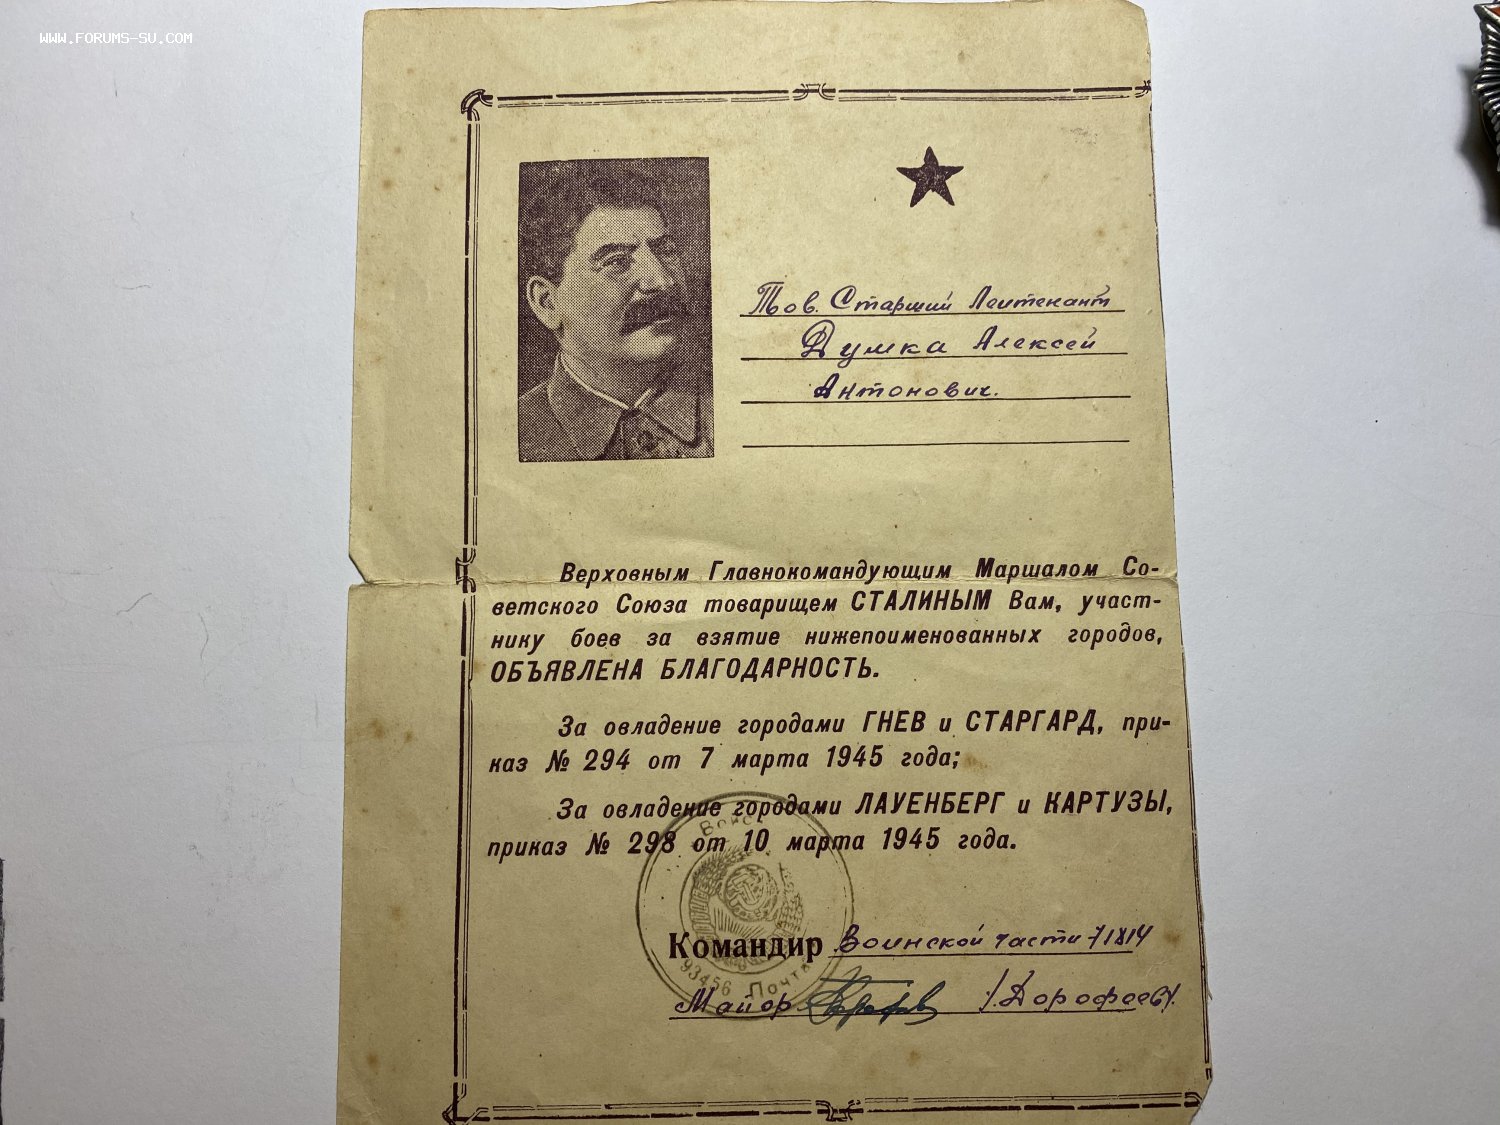 WWW.FORUMS-SU.COM
Тов. Старший Лейтенант
Думка Алексей
Антонович.
Верховным Главнокомандующим Маршалом Со-
ветского Союза товарищем СТАЛИНЫМ Вам, участ-
нику боев за взятие нижепоименованных городов,
ОБЪЯВЛЕНА БЛАГОДАРНОСТЬ.
За овладение городами ГНЕВ и СТАРГАРД, при-
каз № 294 от 7 марта 1945 года;
За овладение городами ЛАУЕНБЕРГ и КАРТУЗЫ,
приказ № 298 от 10 марта 1945 года.
Командир Воинской части 71814
93456 Почта
Майор /Дорофеев/.